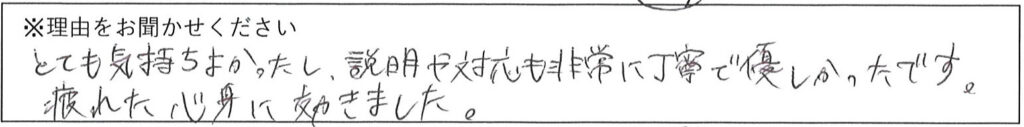 ※理由をお聞かせください
とても気持ちよかったし、説明や対応も非常に丁寧で優しかったです。
疲れた心身に効きました。